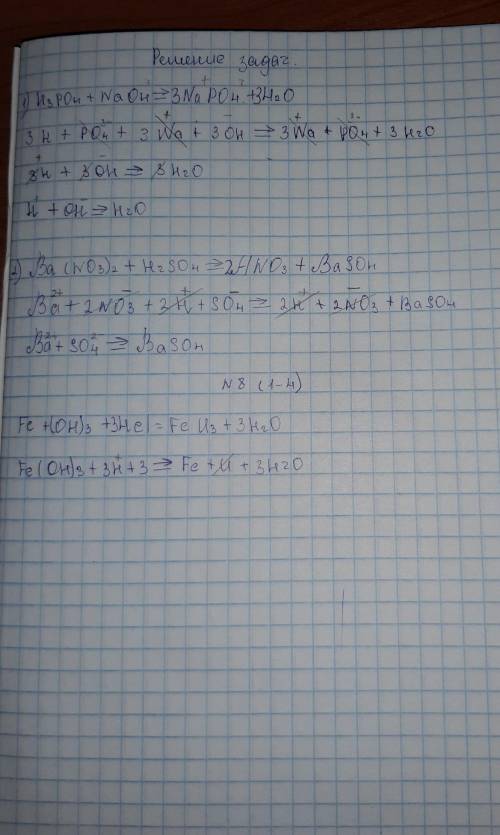 Решение задач.
1) H3PO4 + NaOH ⇒ 3Na⁺PO4³⁻ + 3H2O
3H + PO4³⁻ + 3Na⁺ + 3OH⁻ ⇒ 3Na⁺ + PO4³⁻ + 3H2O
3H⁺ + 3OH⁻ ⇒ 3H2O
H⁺ + OH⁻ ⇒ H2O
2) Ba(NO3)2 + H2SO4 ⇒ 2HNO3 + BaSO4
Ba²⁺ + 2NO3⁻ + 2H⁺ + SO4⁻ ⇒ 2H⁺ + 2NO3⁻ + BaSO4
Ba²⁺ + SO4²⁻ ⇒ BaSO4
N8 (1-4)
Fe +(OH)3 + 3HCl = FeCl3 + 3H2O
Fe(OH)3 + 3H⁺ + 3 ⇒ Fe + Cl + 3H2O